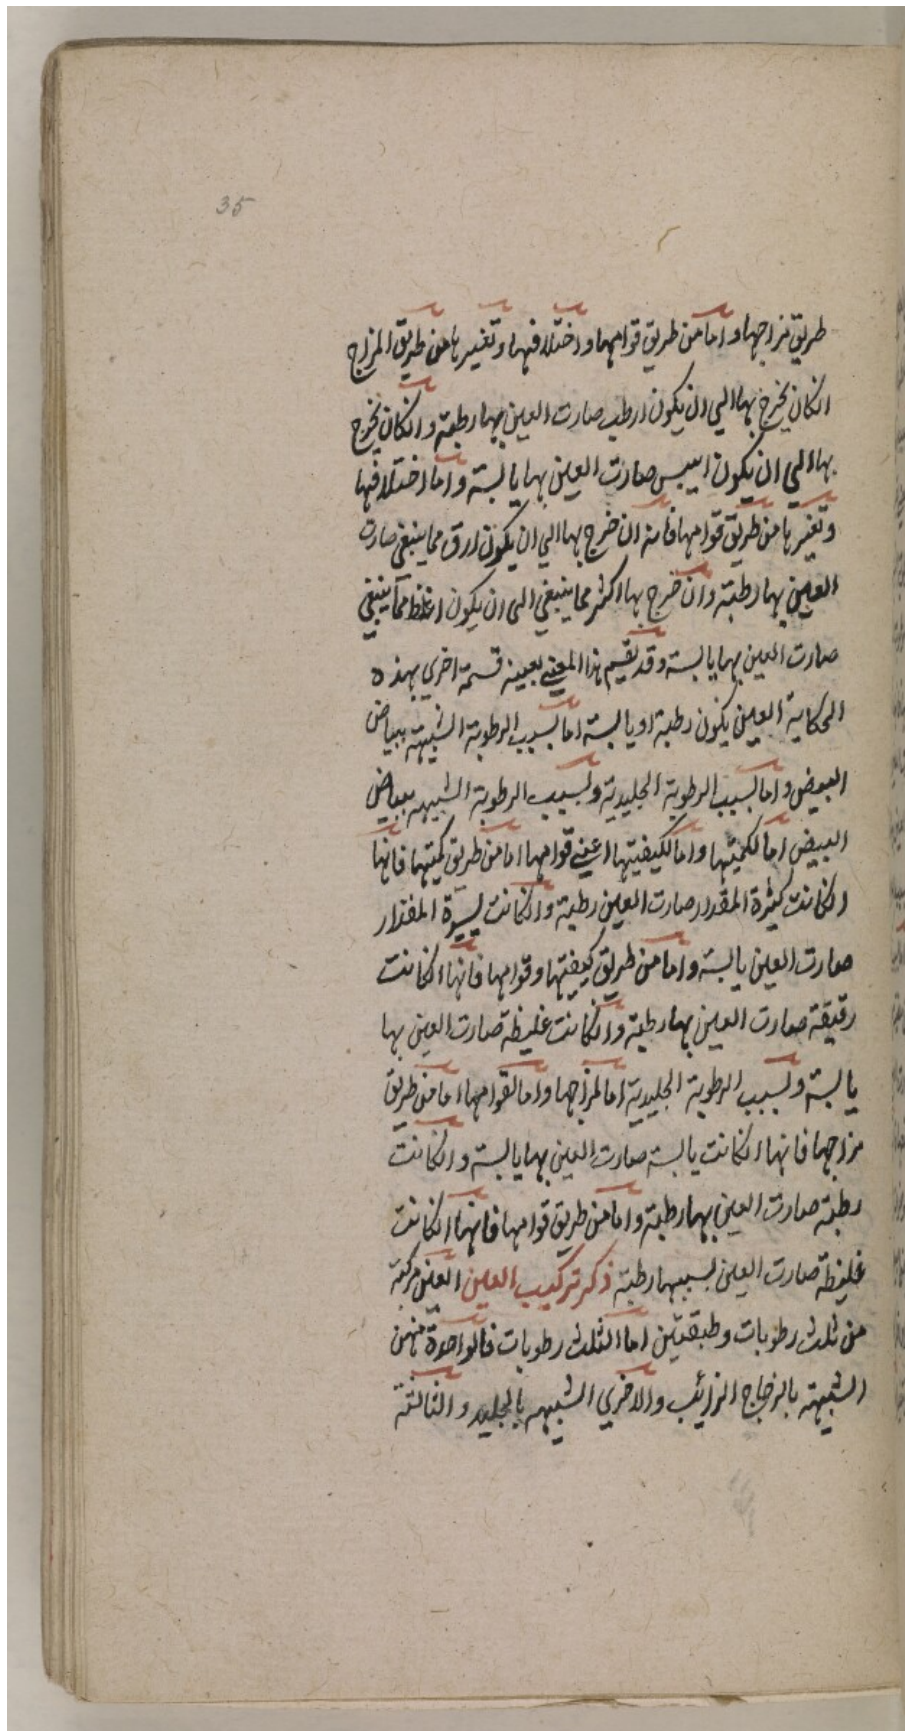 35
طريق مزاجها واما من طريق قوامها واختلافها وتغيرها من طريق المزاج
انكان يخرج بها الي ان يكون ارطب صارت العين بها رطبة وانكان يخرج
بها الي ان يكون ايبس صارت العين بها يابسة واما اختلافها
وتغيرها من طريق قوامها فانه ان خرج بها الي ان يكون ارق مما ينبغي صارت
العين بها رطبة وان خرج بها اكثر مما ينبغي الى ان يكون اغلظ مما ينبغي
صارت العين بها يابسة وقد نقسم هذا المعني بعينه قسمة اخري بهذه
الحكاية العين يكون رطبة او يابسة اما بسبب الرطوبة الشبيهة ببياض
البيض واما بسبب الرطوبة الجليدية وبسبب الرطوبة الشبيهه ببياض
البيض اما لكميتها واما لكيفيتها اعني قوامها اما من طريق كميتها فانها
انكانت كثيرة المقدار صارت العين رطبة وانكانت يسيرة المقدار
صارت العين يابسة واما من طريق كيفيتها وقوامها فانها انكانت
رقيقة صارت العين بها رطبة وانكانت غليظة صارت العين بها
يابسة وبسبب الرطوبة الجليدية اما لمزاجها واما لقوامها اما من طريق
مزاجها فانها انكانت يابسة صارت العين بها يابسة وانكانت
رطبة صارت العين بها رطبة واما من طريق قوامها فانها انكانت
غليظة صارت العين بسببها رطبة ذكر تركيب العين العين مركبة
من ثلث رطوبات وطبقتين اما الثلث رطوبات فالواحدة منهن
الشبيهة بالزجاج الذائب والاخري الشبيهه بالجليد والثالثة